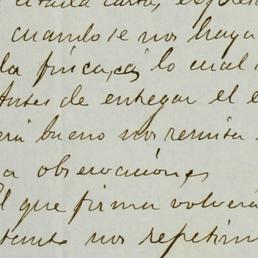 citada carta, expres
cuando se nos haya
la finca, á lo cual
Antes de entregar el e
erá bueno nos remita
a observaciones
El que firma volverá
tanto nos repetim